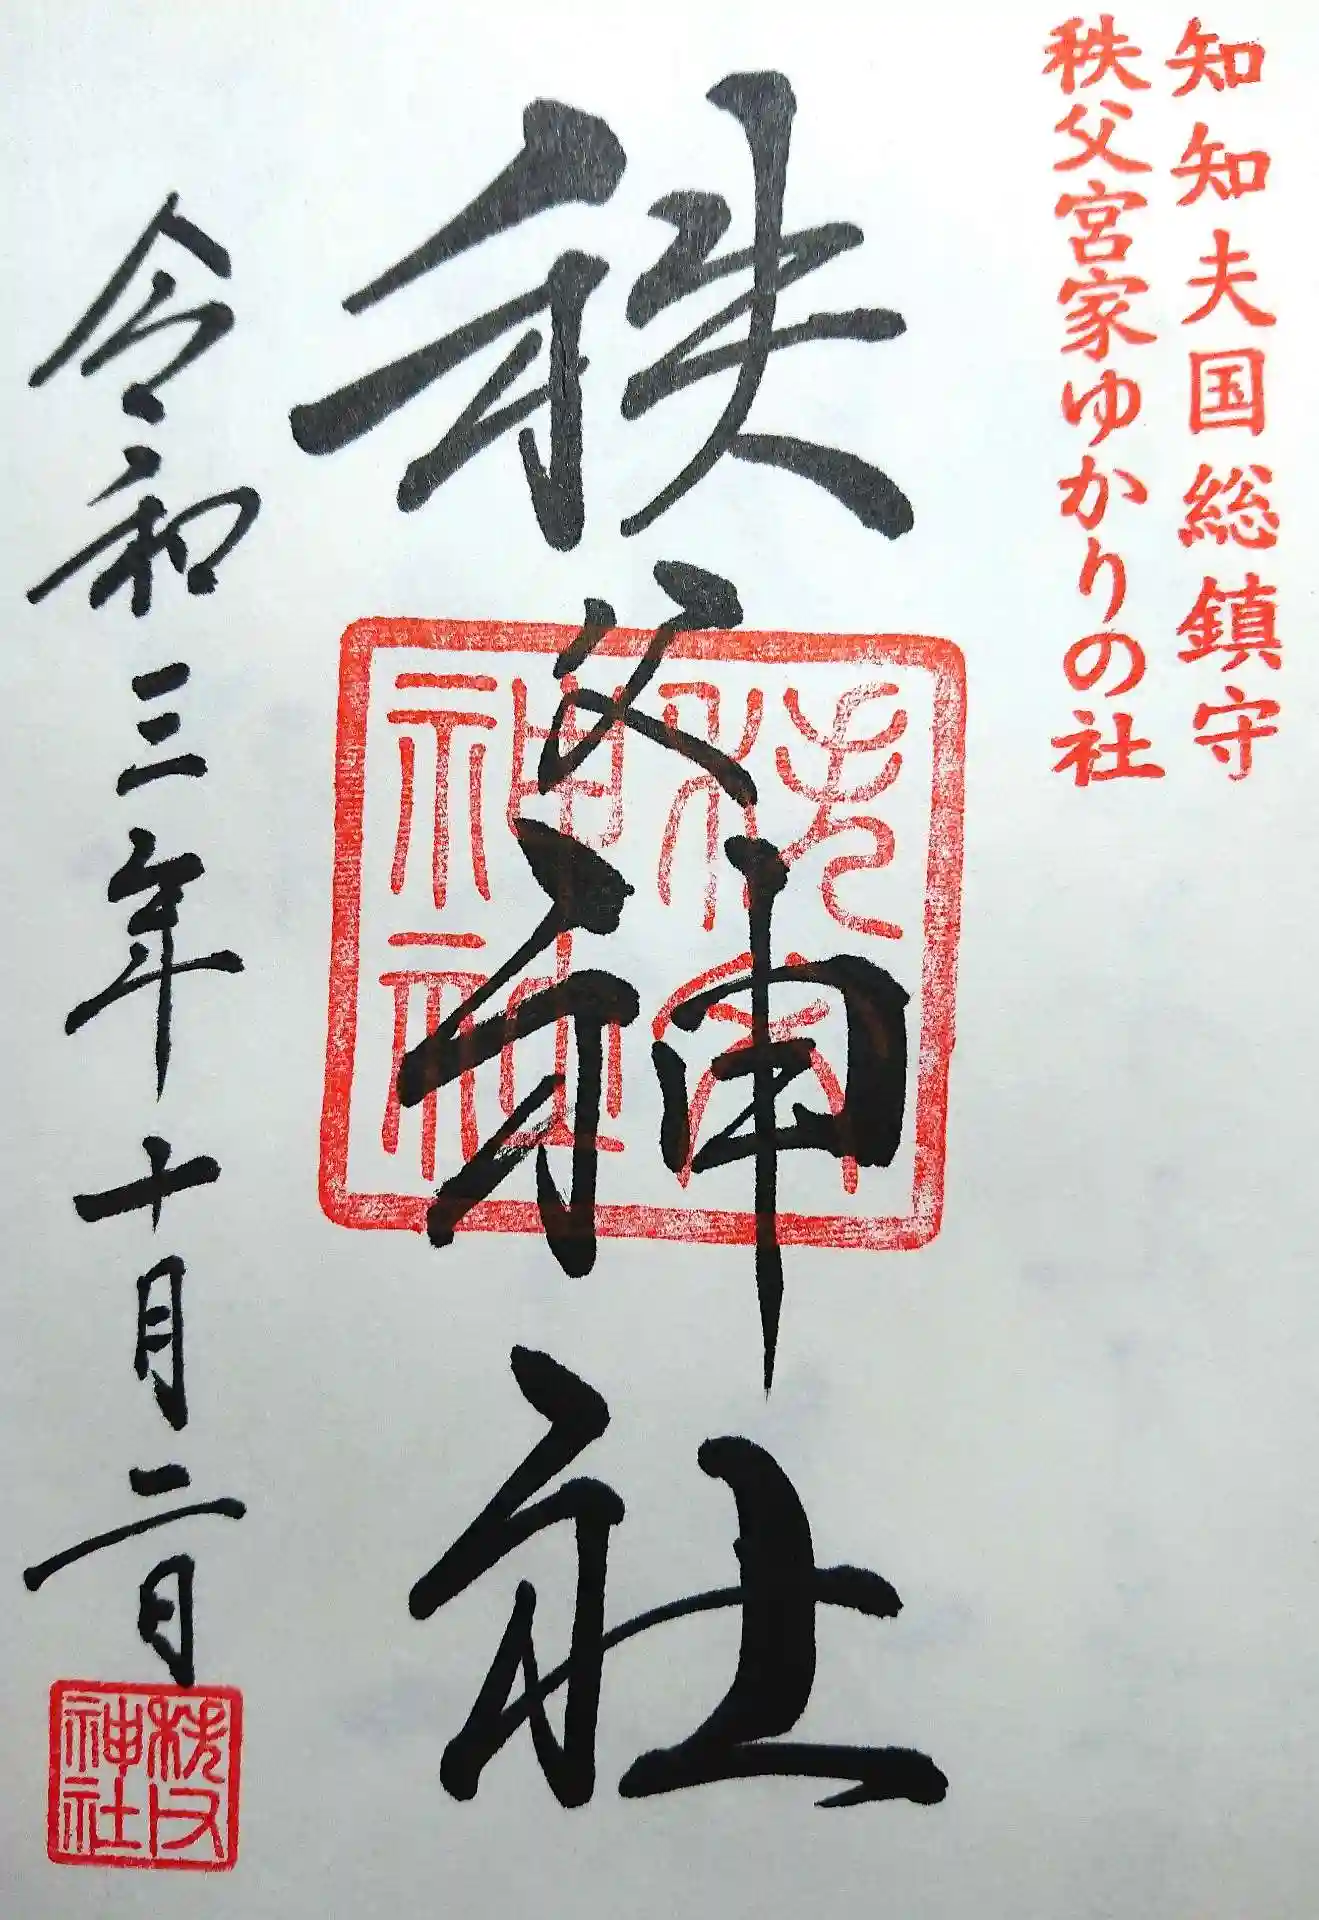 知知夫国総鎮守
秩父宮家ゆかりの社
秩父神社
秩父神社
令和三年十月二日
秩父神社